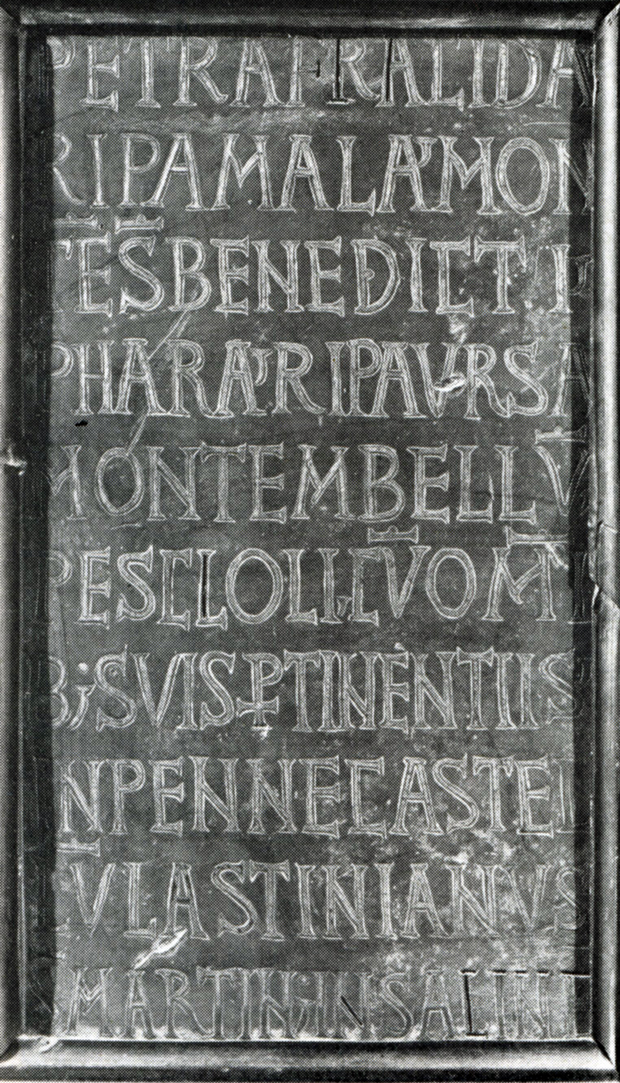 PETRAFRALIDA
RIPAMALA;MON
TES̄BENEDICT
PHARA;RIPAVRSA
MONTEMBELLV̄
PESCLOLICV̄OM̄I
B;SVISPTINENTIIS
INPENNECASTEL
VLASTINIANVS
MARTIN;INSALINI